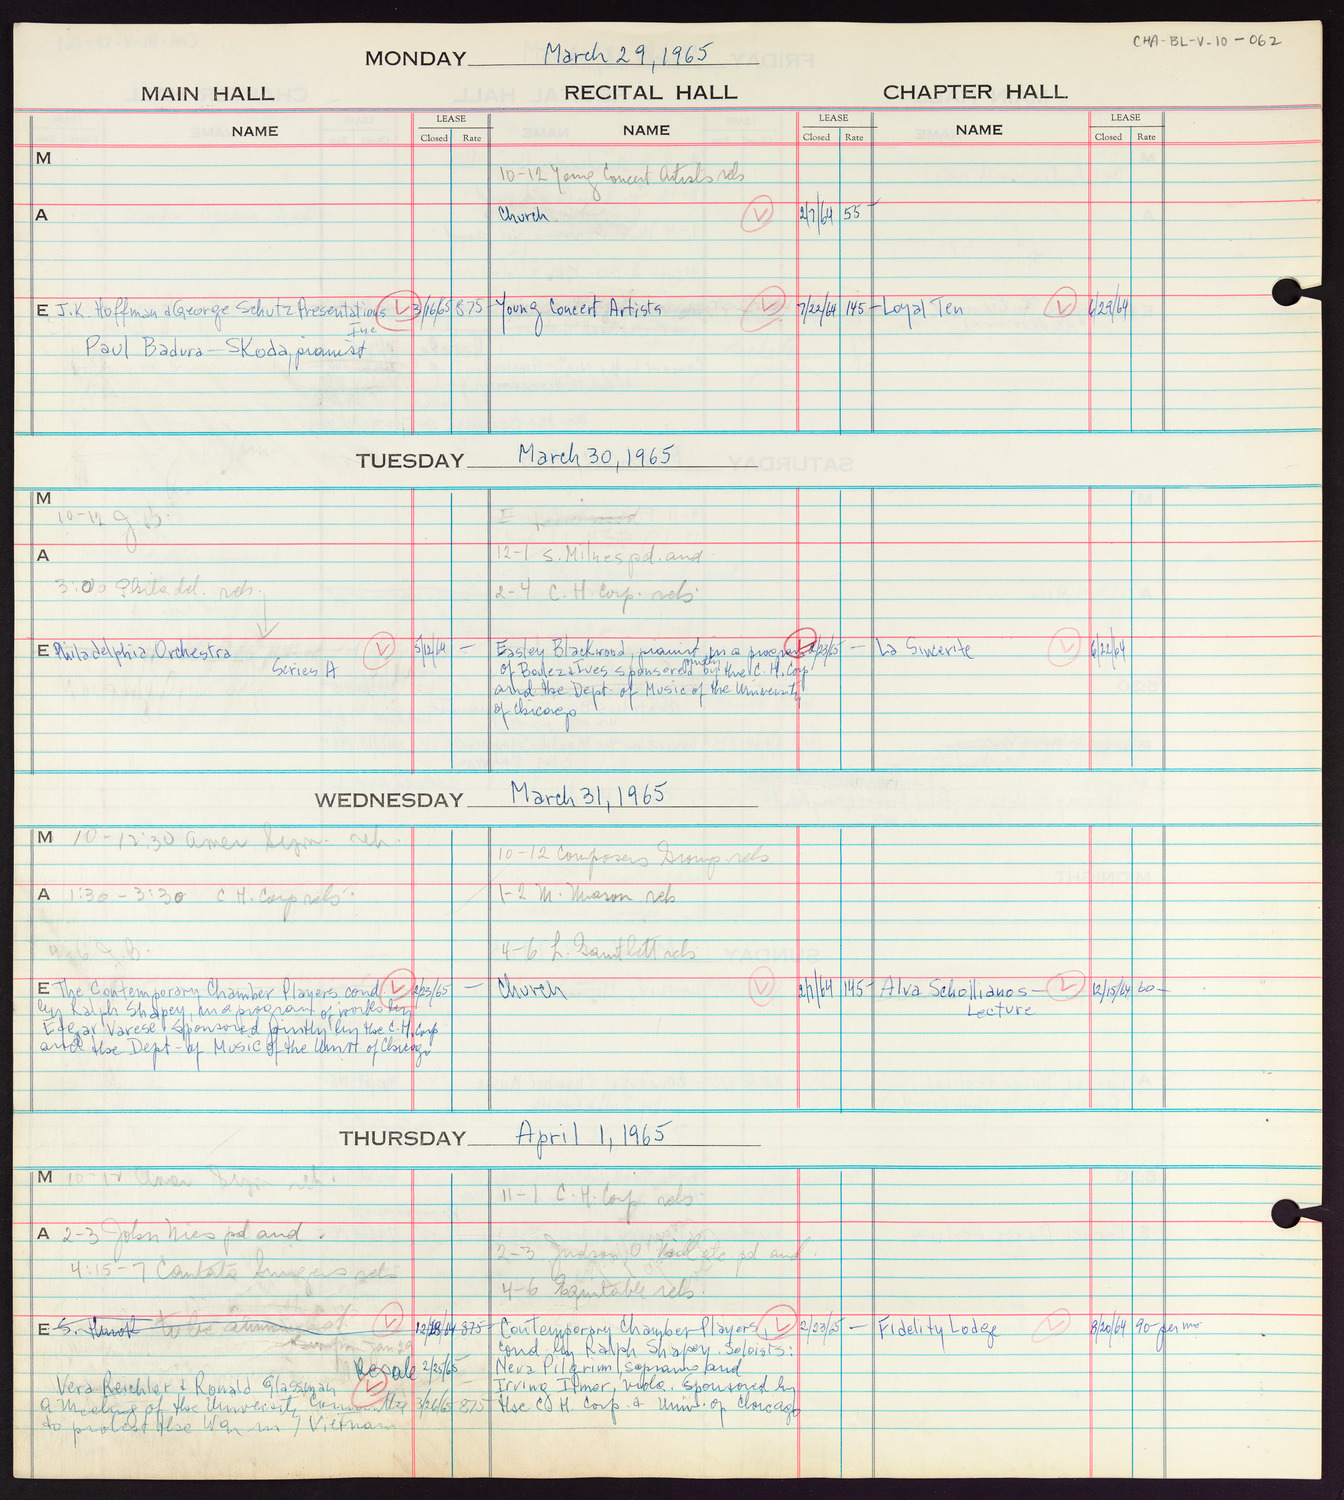 CHA-BL-V-10-062
MONDAY March 29, 1965
MAIN HALL RECITAL HALL CHAPTER HALL
NAME LEASE NAME LEASE NAME LEASE
Closed Rate Closed Rate Closed Rate
M
10-12 Young Concert Artists reh
A
Church 2/7/64 55-
E J.K. Hoffman & George Schutz Presentations 3/16/65 875- Young Concert Artists 7/22/64 145- Loyal Ten 6/29/64
Inc
Paul Badura-Skoda, pianist
TUESDAY March 30, 1965
M
10-12 J. B.
A 12-1 S. Milnes pd. and
3:00 Philadel. reh. 2-4 C.H. Corp. reh.
E Philadelphia Orchestra 5/12/64 - Easley Blackwood, pianist in a program 2/23/65 - La Sincerite 6/22/64
Series A of Boulez & Ives sponsored jointly by the C.H. Corp
and the Dept. of Music of the University
of Chicago
WEDNESDAY March 31, 1965
M 10-12:30 Amer Sym. reh.
10-12 Composers Group reh
A 1:30-3:30 C.H. Corp reh. 1-2 M. Mason reh
4-6 J.B. 4-6 L. Gantlett reh
E The Contemporary Chamber Players cond 2/23/65 - Church 2/7/64 145- Alva Schollianos- 12/15/64 60-
by Ralph Shapey, in a program of works by Lecture
Edgar Varese sponsored jointly by the C.H. Corp
and the Dept. of Music of the Univ of Chicago
THURSDAY April 1, 1965
M 10-12 Amer Sym reh.
11-1 C.H. Corp reh.
A 2-3 John Nies pd and
2-3 Judson pd and
4:15-7 Cantata Singers reh
4-6 Equitable reh.
E S. Hurok to be announced 12/28/64 875- Contemporary Chamber Players, 2/23/65 - Fidelity Lodge 8/20/64 90- per mo
cond. by Ralph Shapey. Soloists:
Resale 2/25/65 Neva Pilgrim, soprano and
Vera Reichler & Ronald Glassman Irving Ilmer, viola. Sponsored by
a meeting of the University Committee 3/26/65 875 the C.H. Corp. & Univ. of Chicago
to protest the War in Vietnam